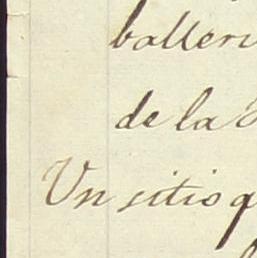 balleri
de la
Un sitio q